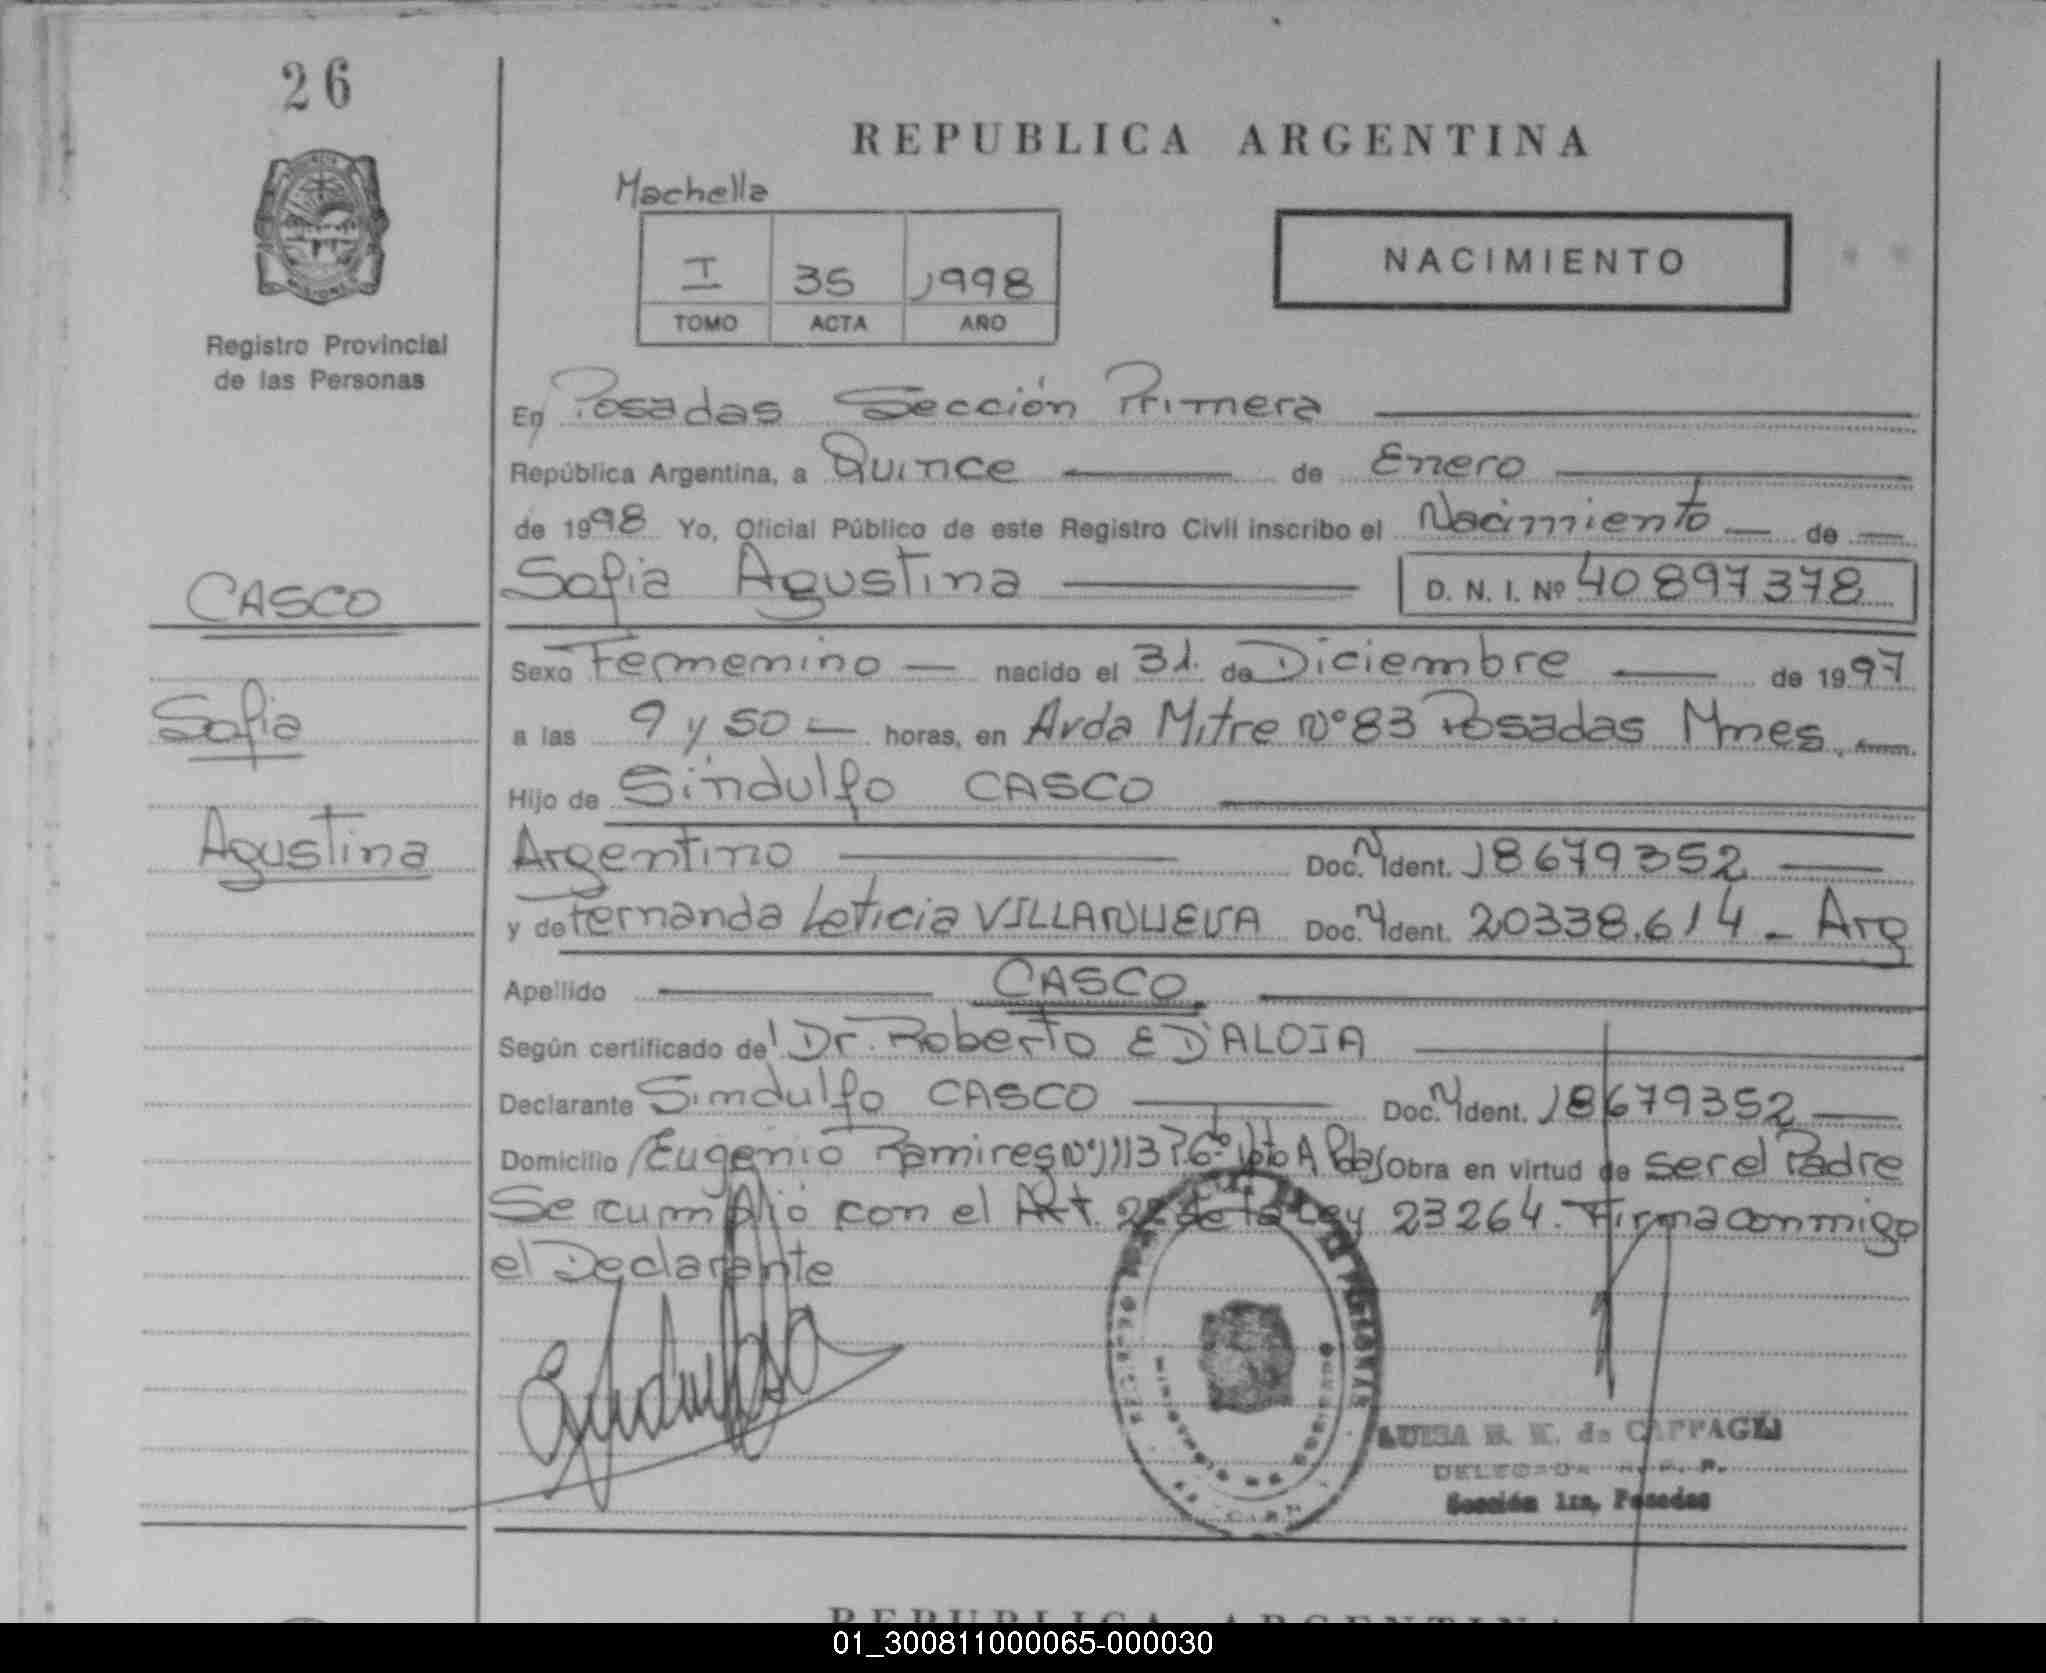 26
REPUBLICA ARGENTINA
Machella
I 35 1998
TOMO ACTA AÑO
NACIMIENTO
MISIONES
Registro Provincial
de las Personas
En Posadas Sección Primera
República Argentina, a Quince de Enero
de 1998 Yo, Oficial Público de este Registro Civil inscribo el Nacimiento de
CASCO
Sofia Agustina D. N. I. Nº 40897378
Sexo Femenino nacido el 31. de Diciembre de 1997
Sofia
a las 9 y 50 horas, en Avda Mitre Nº 83 Posadas Mnes.
Hijo de Sindulfo CASCO
Agustina
Argentino Doc. N Ident. 18679352
y de Fernanda Leticia VILLANUEVA Doc. N Ident. 20338.614 - Arg
Apellido CASCO
Según certificado del Dr. Roberto E D'ALOIA
Declarante Sindulfo CASCO Doc. N Ident. 18679352
Domicilio Eugenio Ramires Nº 1113 A Pdas Obra en virtud de ser el Padre
Se cumplió con el Art. de la Ley 23264. Firma conmigo
el Declarante
LUISA B. K. de
DELEGADA R. P. P.
Sección 1ra, Posadas
REPUBLICA ARGENTINA
01_300811000065-000030